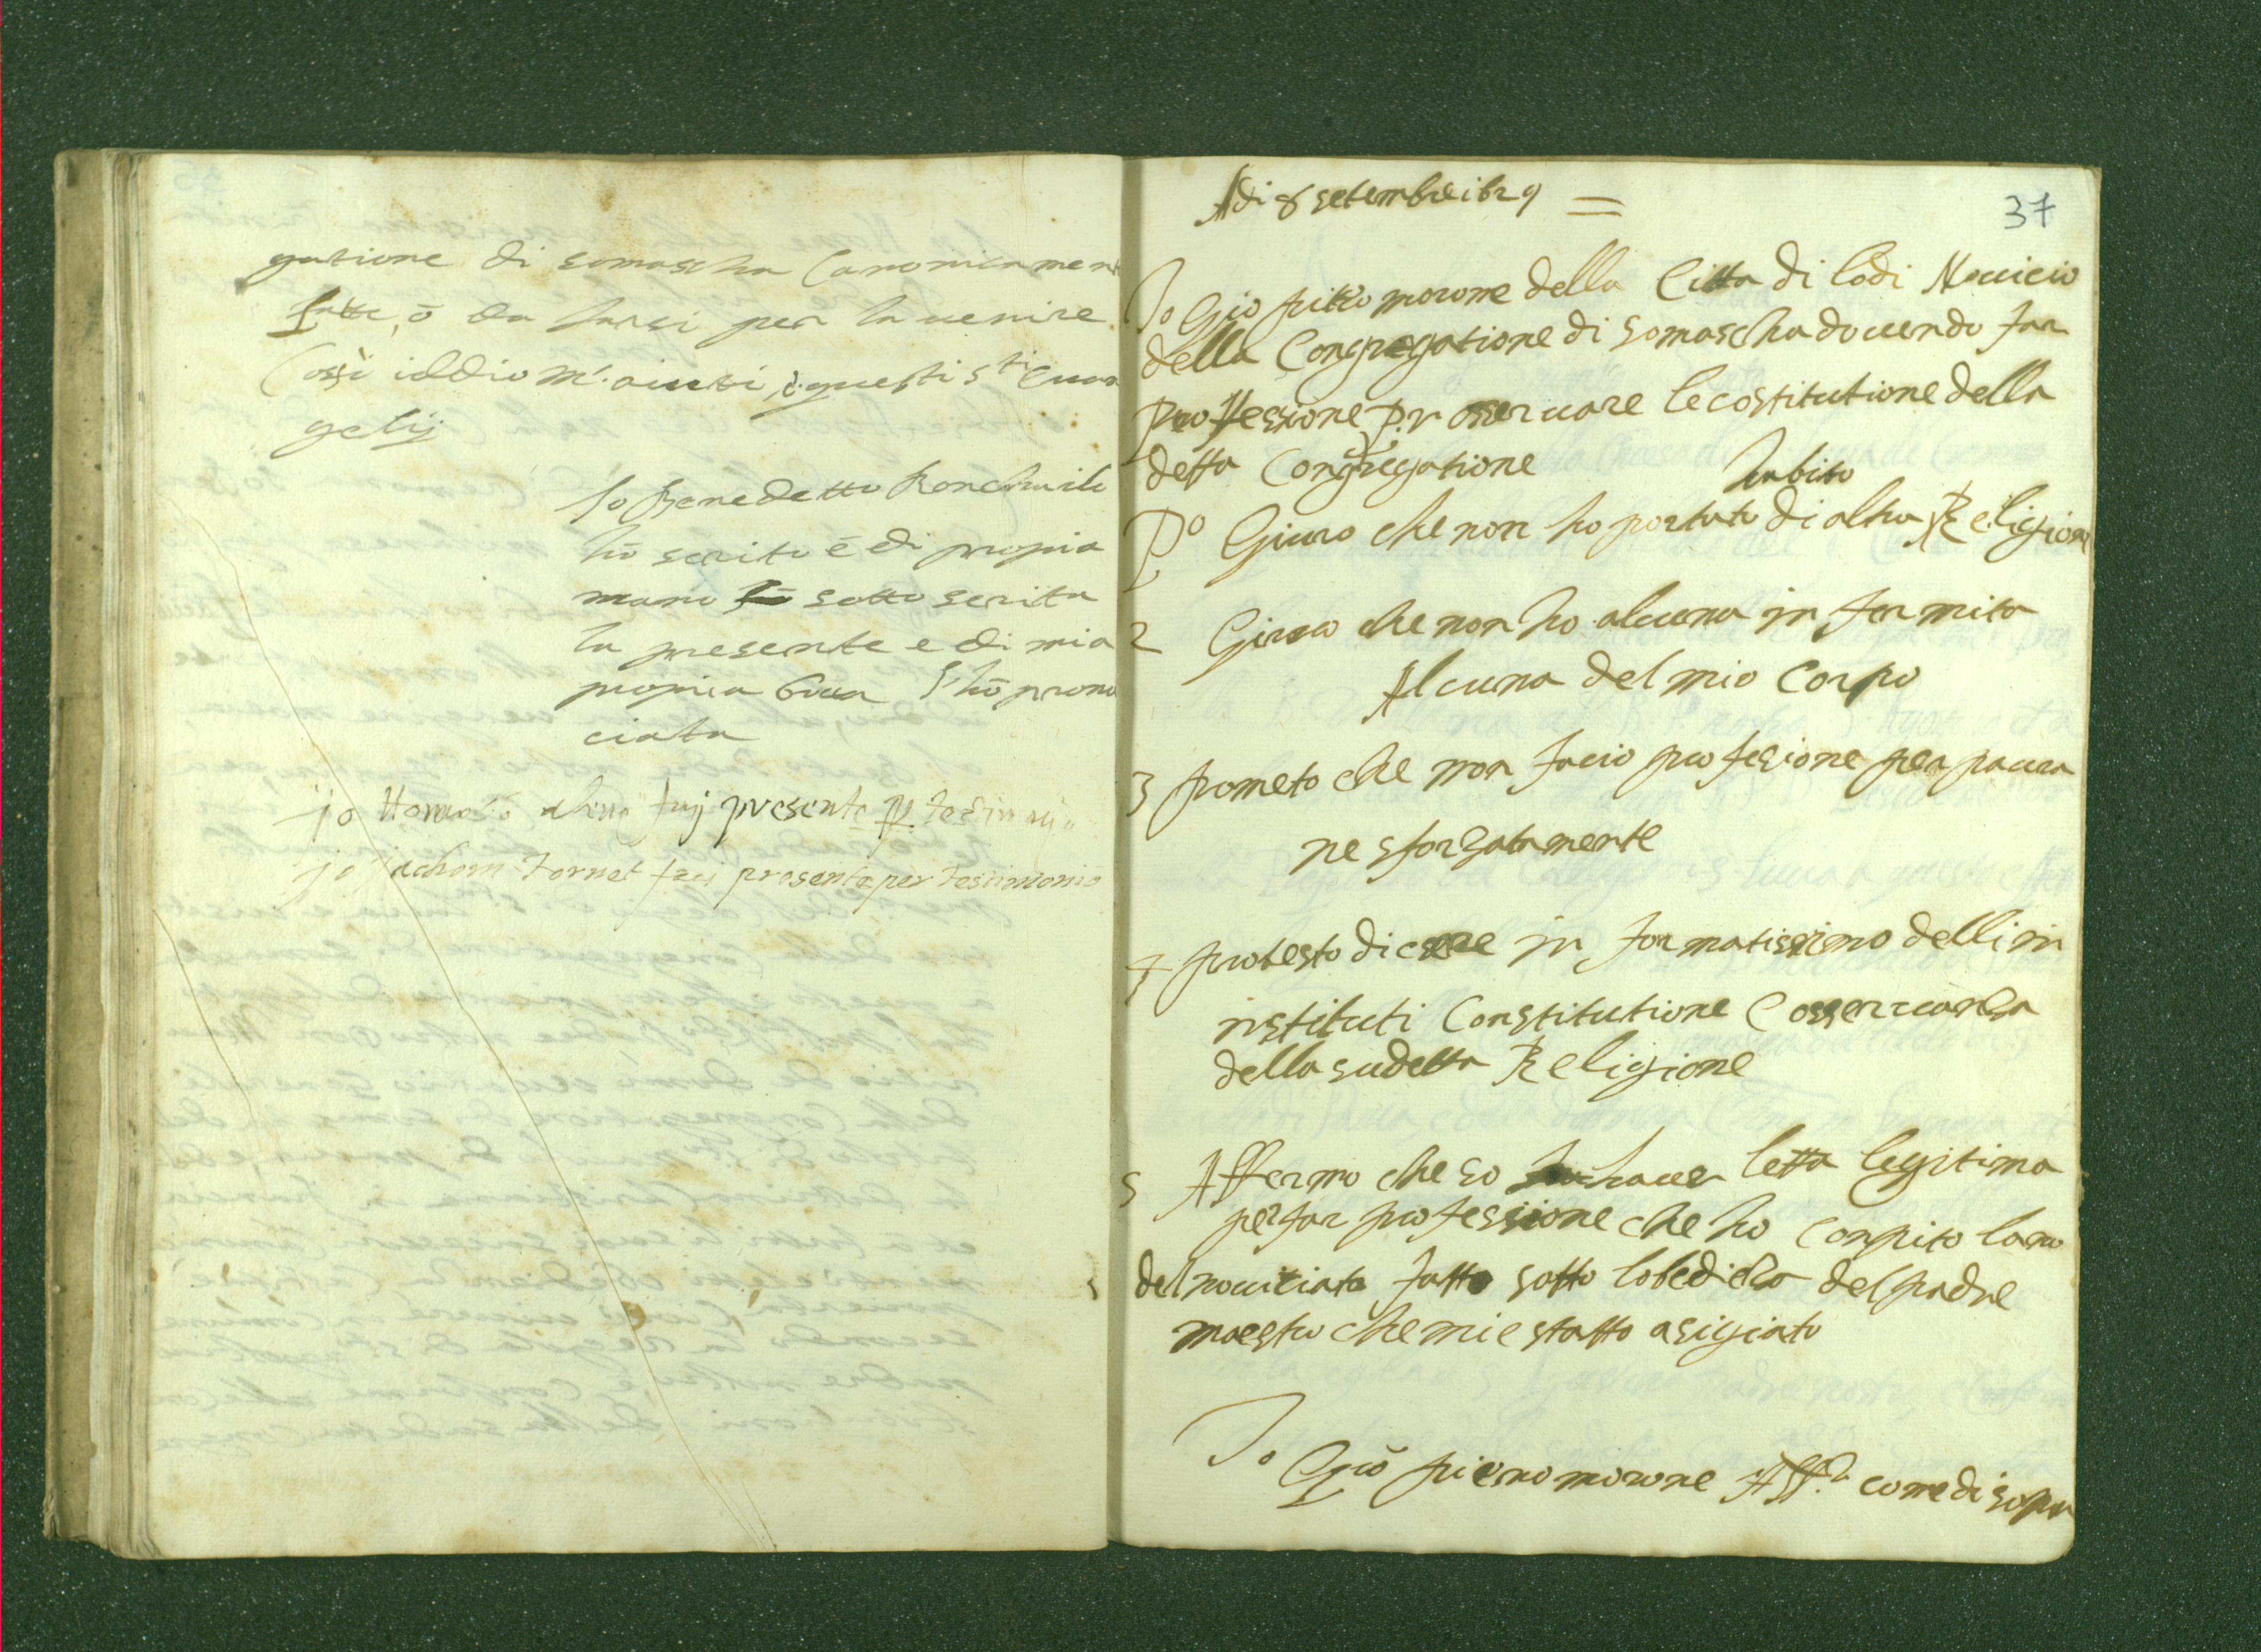 gatione di somascha Canonicament
fatte, ò da farsi per la uenire
Cossi iddio m'aiuti, è questi sti Euan
gelij
Io Benedetto
hò scrito é di propria
mano sotto scritta
la presente e di mia
propria bocca l'hò pronu
ciata
io fuij presente p
io fornet fui presente per testimonio
37
Adi 8 setembre 1629
Io Gio pietro morone della Citta di lodi Nouicio
della Congregatione di somascha douendo far
proffessione p.r osseruare le costitutione della
detta Congregatione
habito
Po Giuro che non ho portato di altra Religione
2 Giuro che non ho alcuna in fermita
Alcuna del mio Corpo
3 prometo che non facio profesione per paura
ne sforsatamente
4 protesto di esere in formatissimo delli in
instituti Constitutione e osseruanza
della sudetta Religione
5 Affermo che so hauer letta legitima
per far professione che ho conpito lano
del nouiciato fatto sotto lobedientia del padre
maestro che mie statto asigiato
Io Giō pietro morone Aff.o come di sopra